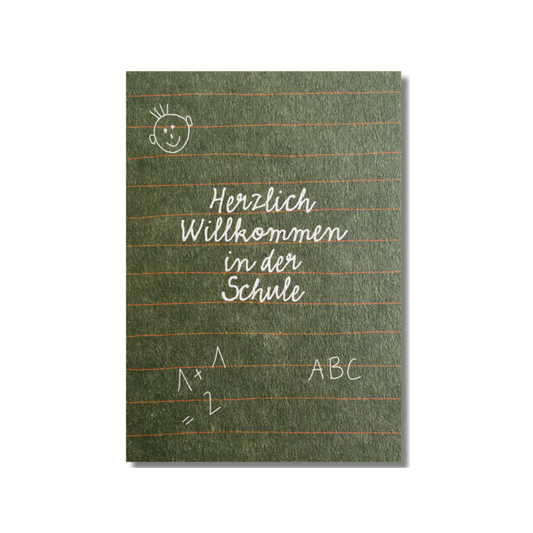 Herzlich
Willkommen
in der
Schule
1 + 1
= 2
ABC